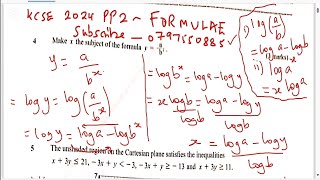 KCSE 2024 PP2 ~ FORMULAE
Subscribe - 0797550885
4 Make x the subject of the formula
y = a/b^x
= log y = log (a/b^x)
= log y = log a - log b^x
= log b^x = log a - log y
= x log b = log a - log y
log b log b
x = log a - log y
log b
i) log (a/b)
= log a - log b
(3 marks)
ii) log a^x
= x log a
5 The unshaded region on the Cartesian plane satisfies the inequalities
x + 3y ≤ 21, −3x + y < −3, −3x + y ≥ −13 and x + 3y ≥ 11.